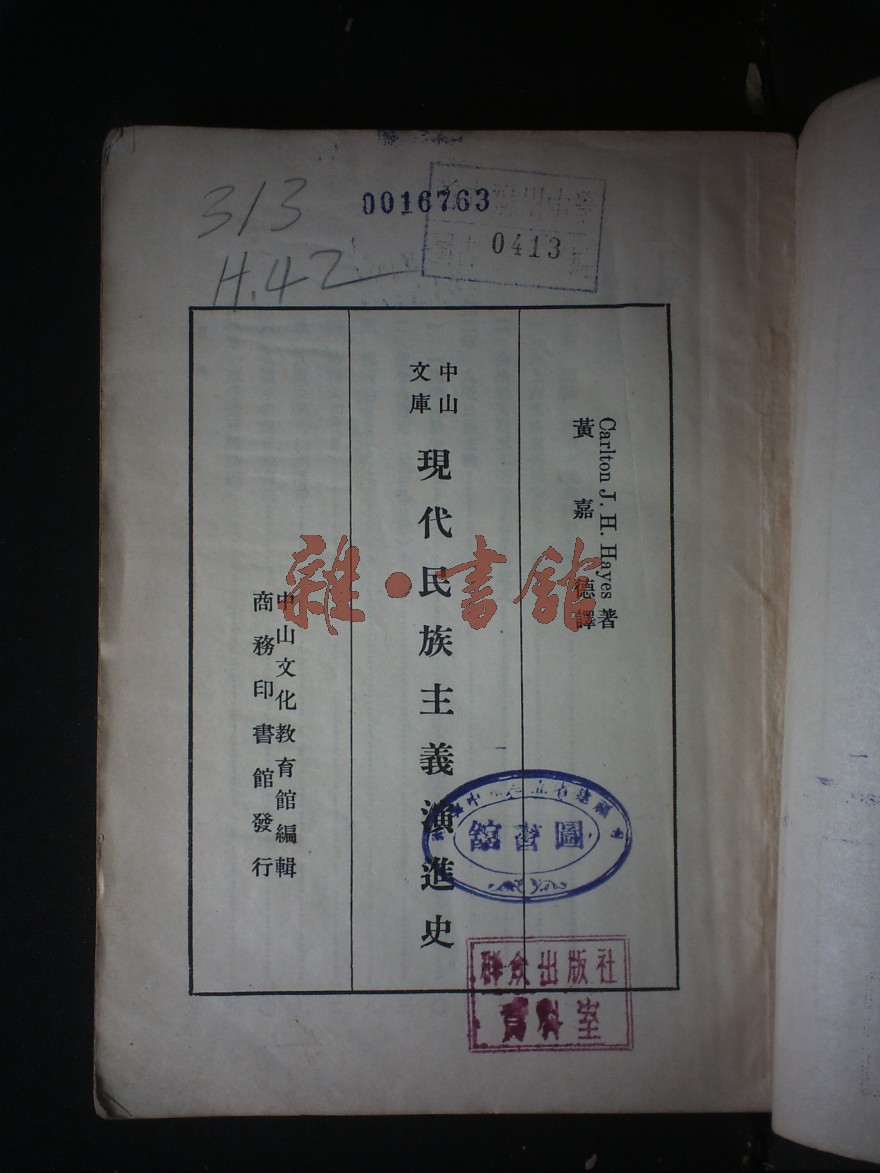 313
H.42
0016763
0413
Carlton J. H. Hayes 著
黃嘉德譯
中山
文庫
現代民族主義演進史
中山文化教育館編輯
商務印書館發行
雜·書館
圖書館
群众出版社
資料室